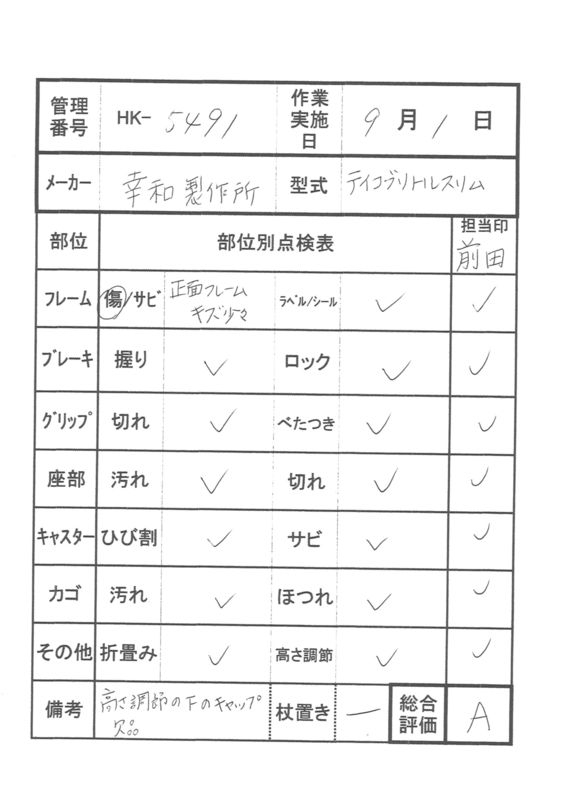 管理番号 HK- 5491 作業実施日 9月1日
メーカー 幸和製作所 型式 テイコブリトルスリム
部位 部位別点検表 担当印 前田
フレーム 傷/サビ 正面フレームキズ少々 ラベル/シール ✓ ✓
ブレーキ 握り ✓ ロック ✓ ✓
グリップ 切れ ✓ べたつき ✓ ✓
座部 汚れ ✓ 切れ ✓ ✓
キャスター ひび割 ✓ サビ ✓ ✓
カゴ 汚れ ✓ ほつれ ✓ ✓
その他 折畳み ✓ 高さ調節 ✓ ✓
備考 高さ調節の下のキャップ欠品 杖置き ー 総合評価 A